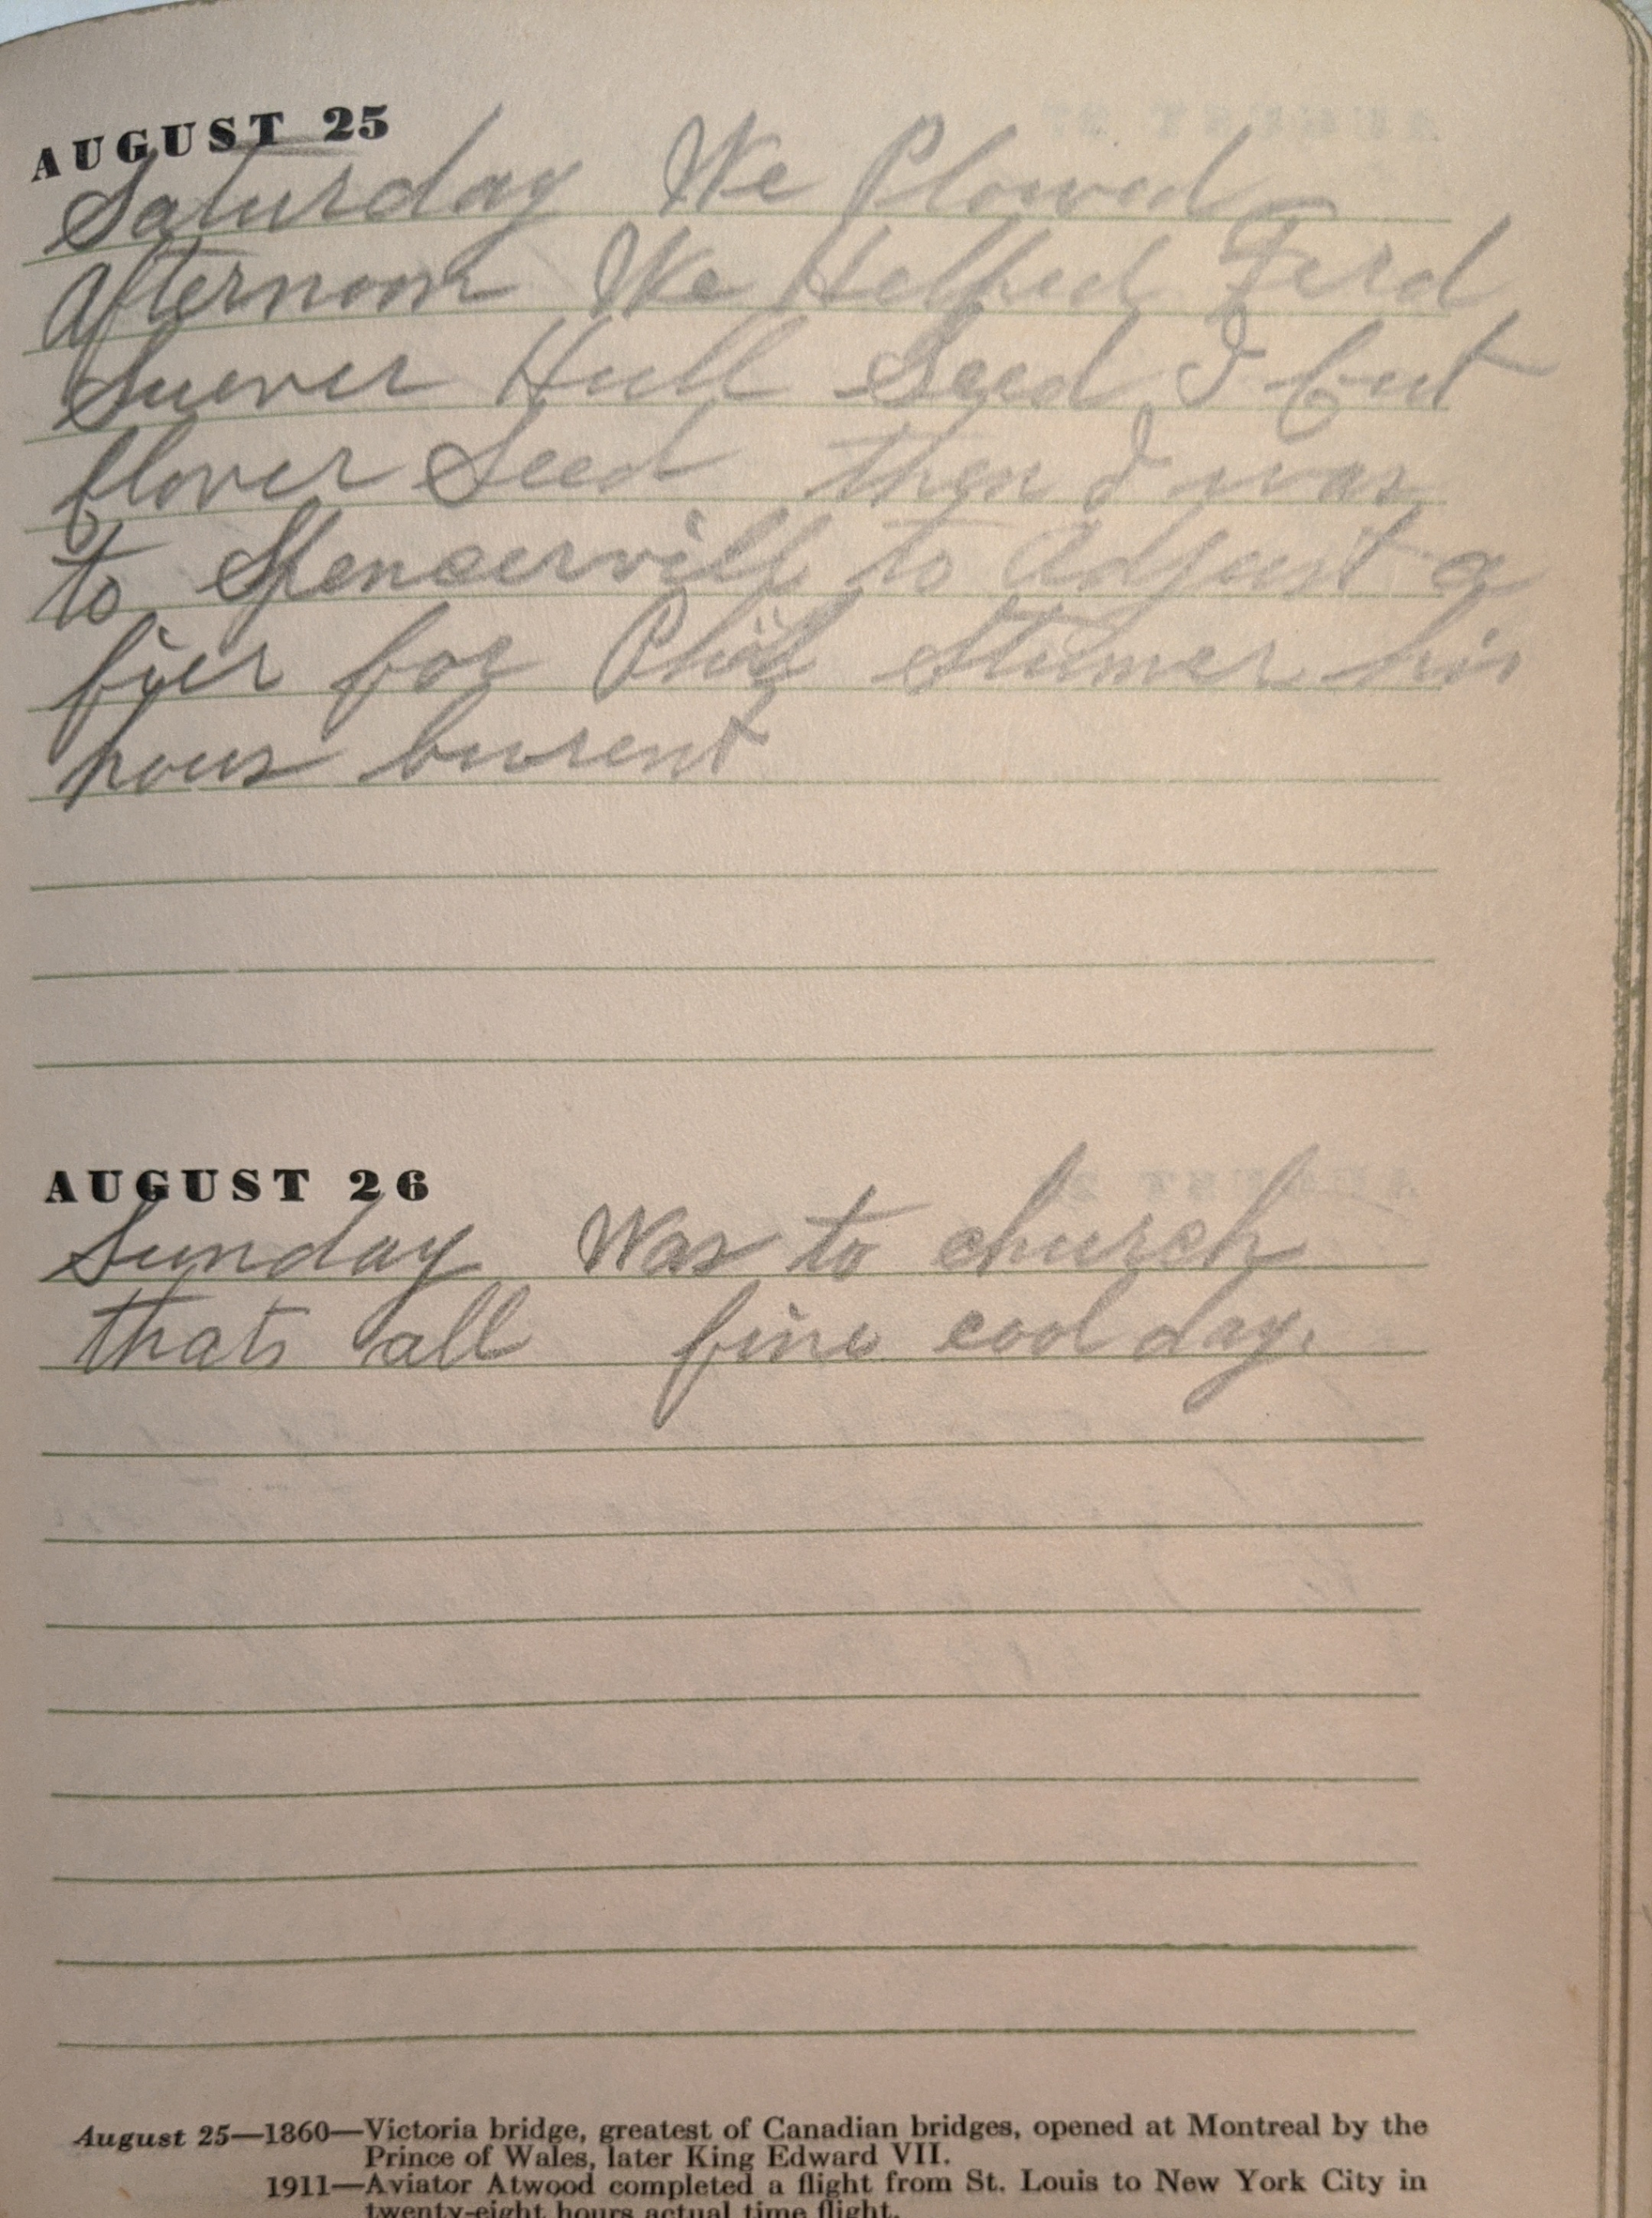 AUGUST 25
Saturday We Plowed
Afternoon We Helped Ferd
Suever Hull Seed I Cut
Clover Seed then I was
to Spencerville to Adjust a
fier for Phil Stemer his
hous burent
AUGUST 26
Sunday Was to church
thats all fine cool day.
August 25—1860—Victoria bridge, greatest of Canadian bridges, opened at Montreal by the
Prince of Wales, later King Edward VII.
1911—Aviator Atwood completed a flight from St. Louis to New York City in
twenty-eight hours actual time flight.